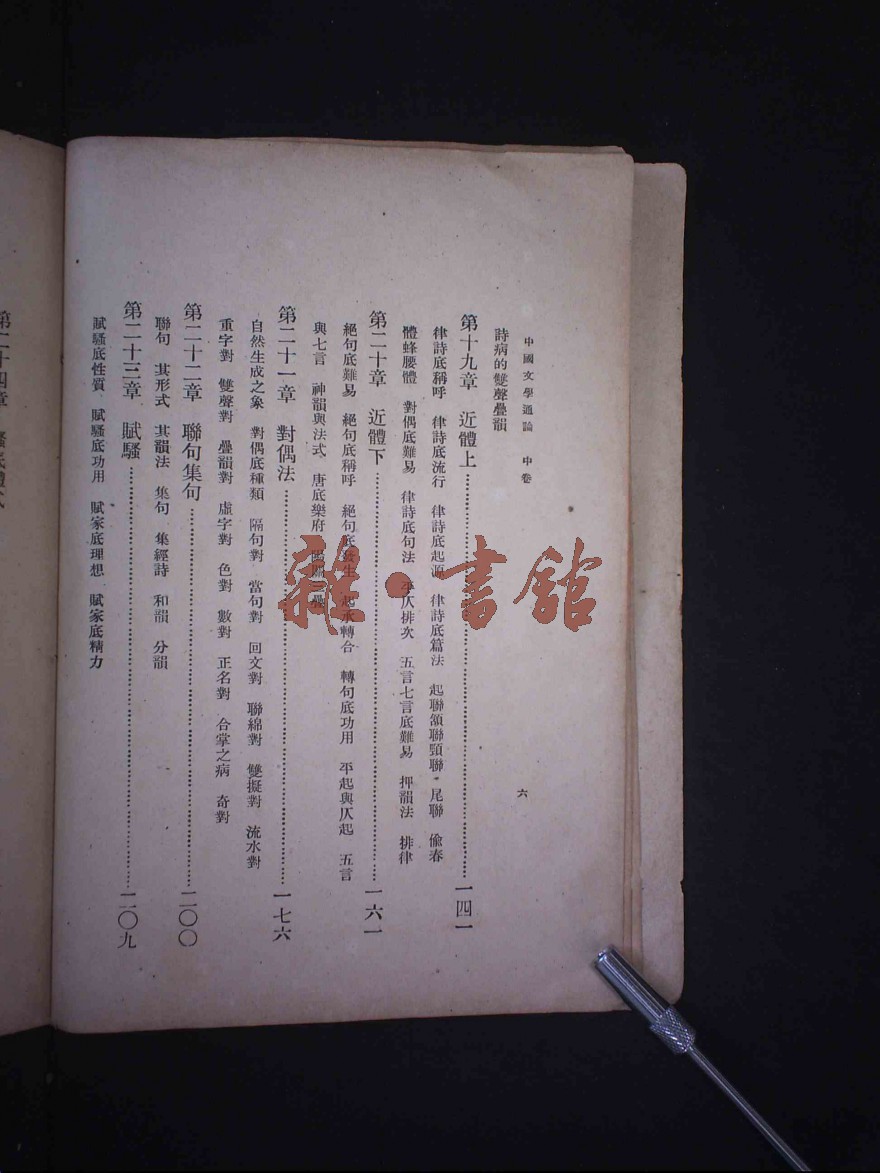 中國文學通論　中卷　六
詩病的雙聲疊韻
第十九章　近體上……一四一
律詩底稱呼　律詩底流行　律詩底起源　律詩底篇法　起聯頷聯頸聯尾聯　偷春
體蜂腰體　對偶底難易　律詩底句法　平仄排次　五言七言底難易　押韻法　排律
第二十章　近體下……一六一
絕句底難易　絕句底稱呼　絕句底發生　起承轉合　轉句底功用　平起與仄起　五言
與七言　神韻與法式　唐底樂府　陽關三疊
第二十一章　對偶法……一七六
自然生成之象　對偶底種類　隔句對　當句對　回文對　聯綿對　雙擬對　流水對
重字對　雙聲對　疊韻對　虛字對　色對　數對　正名對　合掌之病　奇對
第二十二章　聯句集句……二〇〇
聯句　其形式　其韻法　集句　集經詩　和韻　分韻
第二十三章　賦騷……二〇九
賦騷底性質　賦騷底功用　賦家底理想　賦家底精力
第二十四章
雜·書館